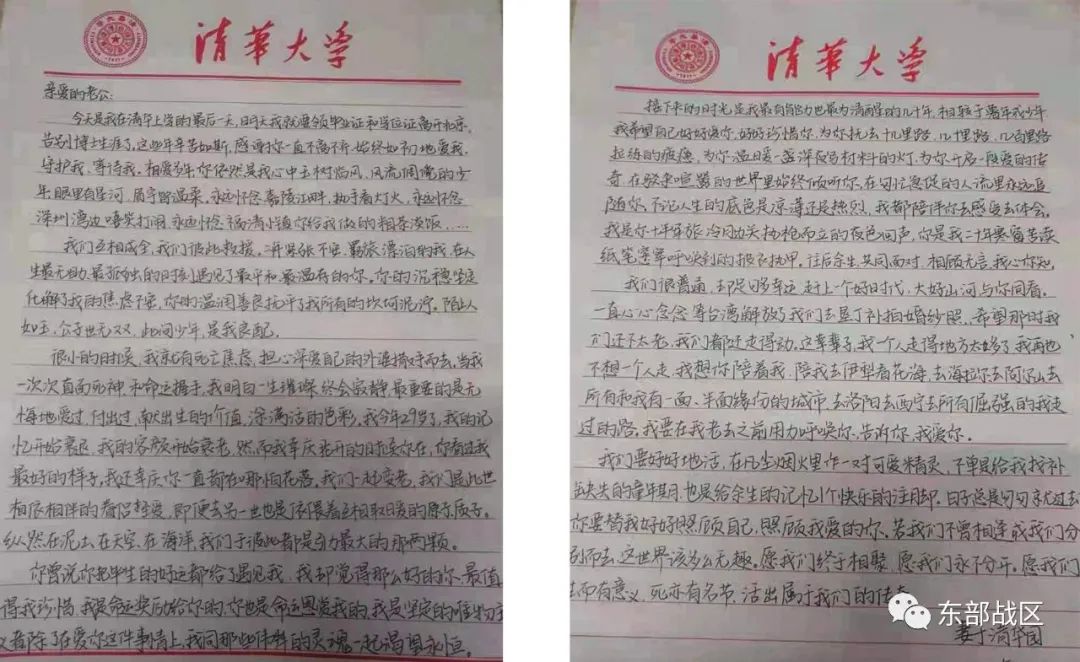 清華大学
亲爱的老公:
今天是我在清华上学的最后一天,明天我就要领毕业证和学位证离开北京,
告别博士生涯了,这些年辛苦如斯,感受到你一直不离不弃,始终如初地爱我,
守护我,等待我。相爱多年你依然是我心中玉树临风,风流倜傥的少
年,眼里有星河,眉宇露温柔。永远怀念嘉陵江畔,执手看灯火,永远怀念
深圳湾边嘻笑打闹,永远怀念福清小镇你给我做的粗茶淡饭……
我们互相成全,我们彼此救援。冲紧张不安,颠簸漂泊的我,在人
生最无助最孤独的时候遇见了最平和最温存的你。你的沉稳坚定
化解了我的焦虑不安,你的温润善良抚平了我所有的坎坷泥泞,陌上人
如玉,公子世无双,此间少年,是我良配。
很小的时候,我就有死亡焦虑,担心深爱自己的外婆撒手而去,当我
一次次直面死神,和命运握手,我明白一生璀璨,终会寂静,最重要的是无
悔地爱过,付出过,献出生的价值,涂满活的色彩。我今年29岁了,我的记
忆开始衰退,我的容颜开始衰老,然而我幸庆北开的时候你在,你看过我
最好的样子,我还幸庆你一直都在哪怕花落。我们一起变老,我们是此世
相依相伴的眷侣挚爱,即便去另一世也是该偎着互相取暖的原子,质子。
纵然在泥土在天空,在海洋,我们于彼此都是引力最大的那两颗。
你曾说你把半生的好运都给了遇见我,我却觉得那么好的你,最值
得我珍惜,我是命运奖励给你的,你也是命运恩宠我的,我是坚定的唯物主
义者除了在爱你这件事情上,我同那些伟大的灵魂一起渴望永恒。
清華大学
接下来的时光是我最有能力也最为清醒的几十年,相较于暮年或少年
我希望自己好好爱你,好好珍惜你,为你抚去十几里路,几十里路,几百里路
拉练的疲惫,为你温暖一盏深夜写材料的灯,为你开启一段爱的传
奇,在繁杂喧嚣的世界里始终倾听你,在匆忙急促的人流里永远追
随你,不论人生的底色是凉薄还是热烈,我都陪伴你去感受去体会。
我是你十年年张冷月边关执枪而立的夜色回声,你是我二十年寒窗苦读
纸笔窸窣呼唤到的报衣执甲。往后余生,共同面对,相顾无言,我心你知。
我们很普通,却足够幸运,赶上一个好时代,大好山河与你同看。
一直心心念念等台湾解放了我们去垦丁补拍婚纱照,希望那时我
们还不太老,我们都还走得动。这辈子,我一个人走得地方太多了,我再也
不想一个人走,我想你陪着我,陪我去伊犁看花海,去海拉尔去阿尔山去
所有和我有一面、半面缘份的城市,去洛阳去西宁去所有倔强的我走
过的路。我要在我老去之前用力呼唤你,告诉你,我爱你。
我们要好好地活,在凡尘烟火里作一对可爱精灵,不单是给我找补
缺失的童年期,也是给余生的记忆1个快乐的注脚。日子总是匆匆就过去
你要替我好好照顾自己,照顾我爱的你。若我们不曾相逢或我们分
别而去,这世界该多么无趣。愿我们终于相聚,愿我们永不分开。愿我们
生而有意义,死亦有名节,活出属于我们的传奇
妻于清华园
东部战区